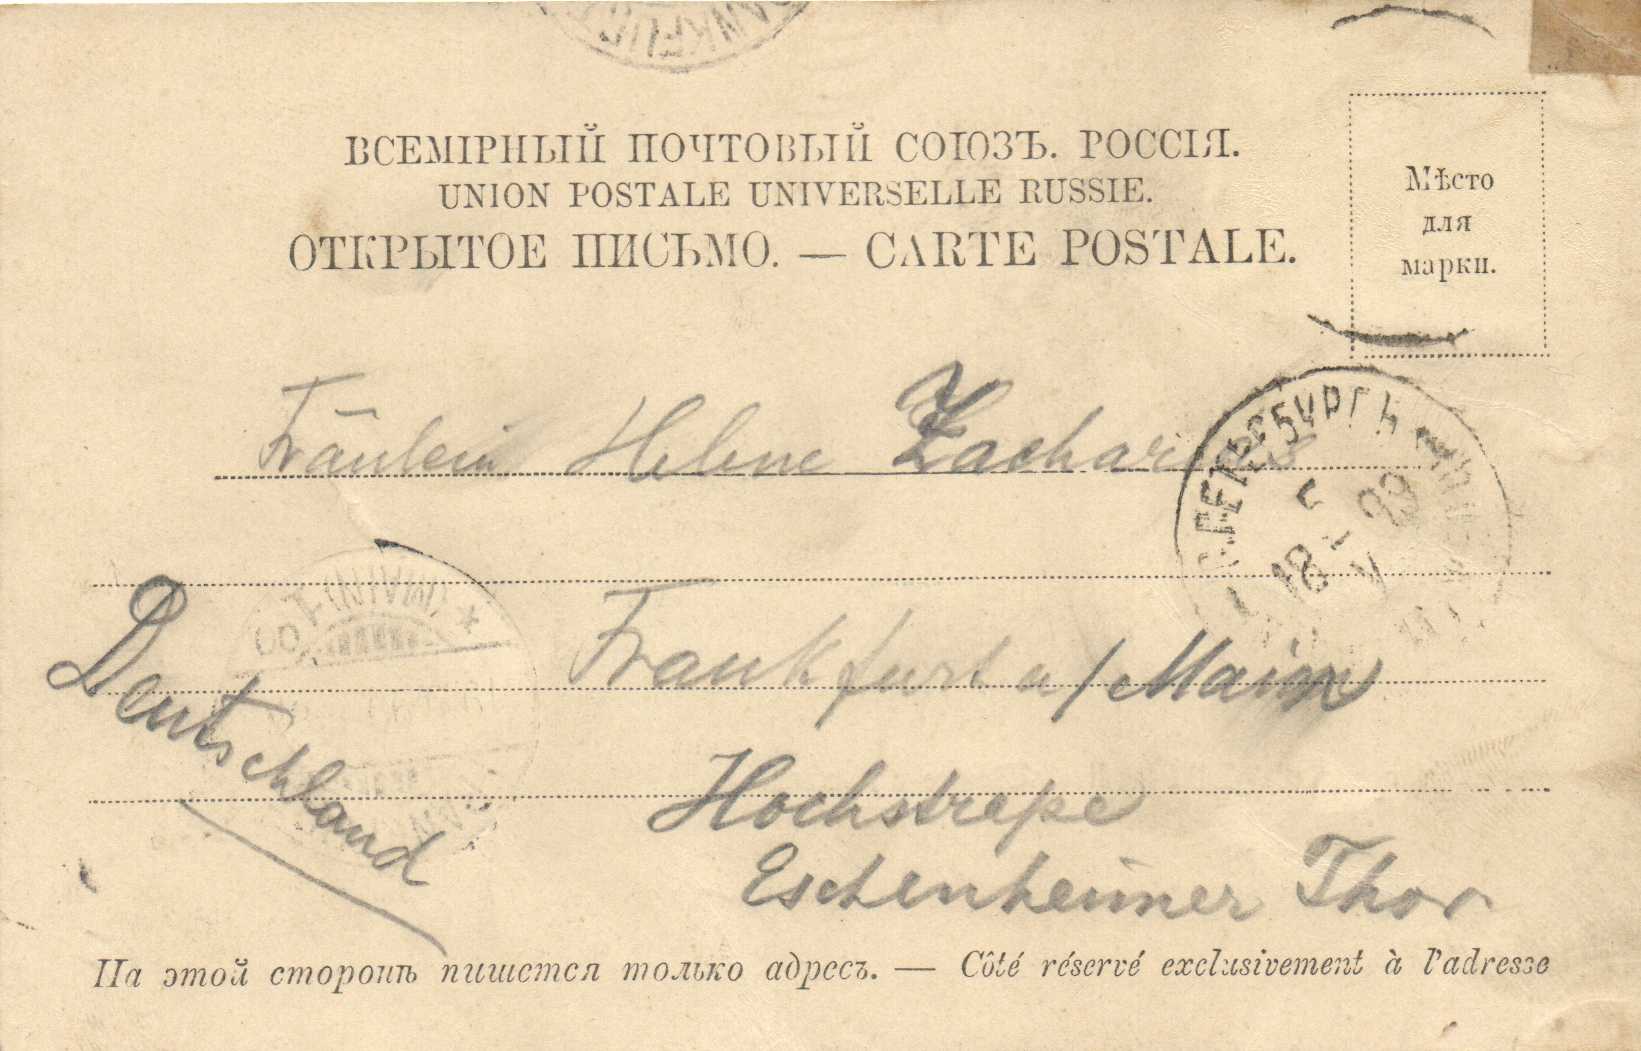 ВСЕМІРНЫЙ ПОЧТОВЫЙ СОЮЗЪ. РОССІЯ.
UNION POSTALE UNIVERSELLE RUSSIE.
ОТКРЫТОЕ ПИСЬМО. — CARTE POSTALE.
Мѣсто
для
марки.
Fräulein Helene Zacharias
Frankfurt a/Main
Hochstraße
Eschenheimer Thor
Deutschland
На этой сторонѣ пишется только адресъ. — Côté réservé exclusivement à l'adresse
(MAIN) *